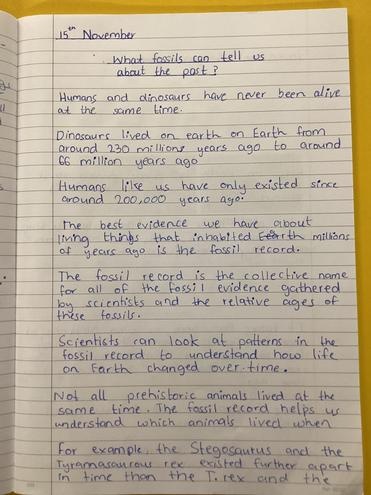 15th November
What fossils can tell us
about the past?
Humans and dinosaurs have never been alive
at the same time.
Dinosaurs lived on earth on Earth from
around 230 millions years ago to around
66 million years ago
Humans like us have only existed since
around 200,000 years ago.
The best evidence we have about
living things that inhabited Earth millions
of years ago is the fossil record.
The fossil record is the collective name
for all of the fossil evidence gathered
by scientists and the relative ages of
these fossils.
Scientists can look at patterns in the
fossil record to understand how life
on Earth changed over time.
Not all prehistoric animals lived at the
same time. The fossil record helps us
understand which animals lived when
For example, the Stegosaurus and the
Tyrannasaurous rex existed further apart
in time than the T. rex and the